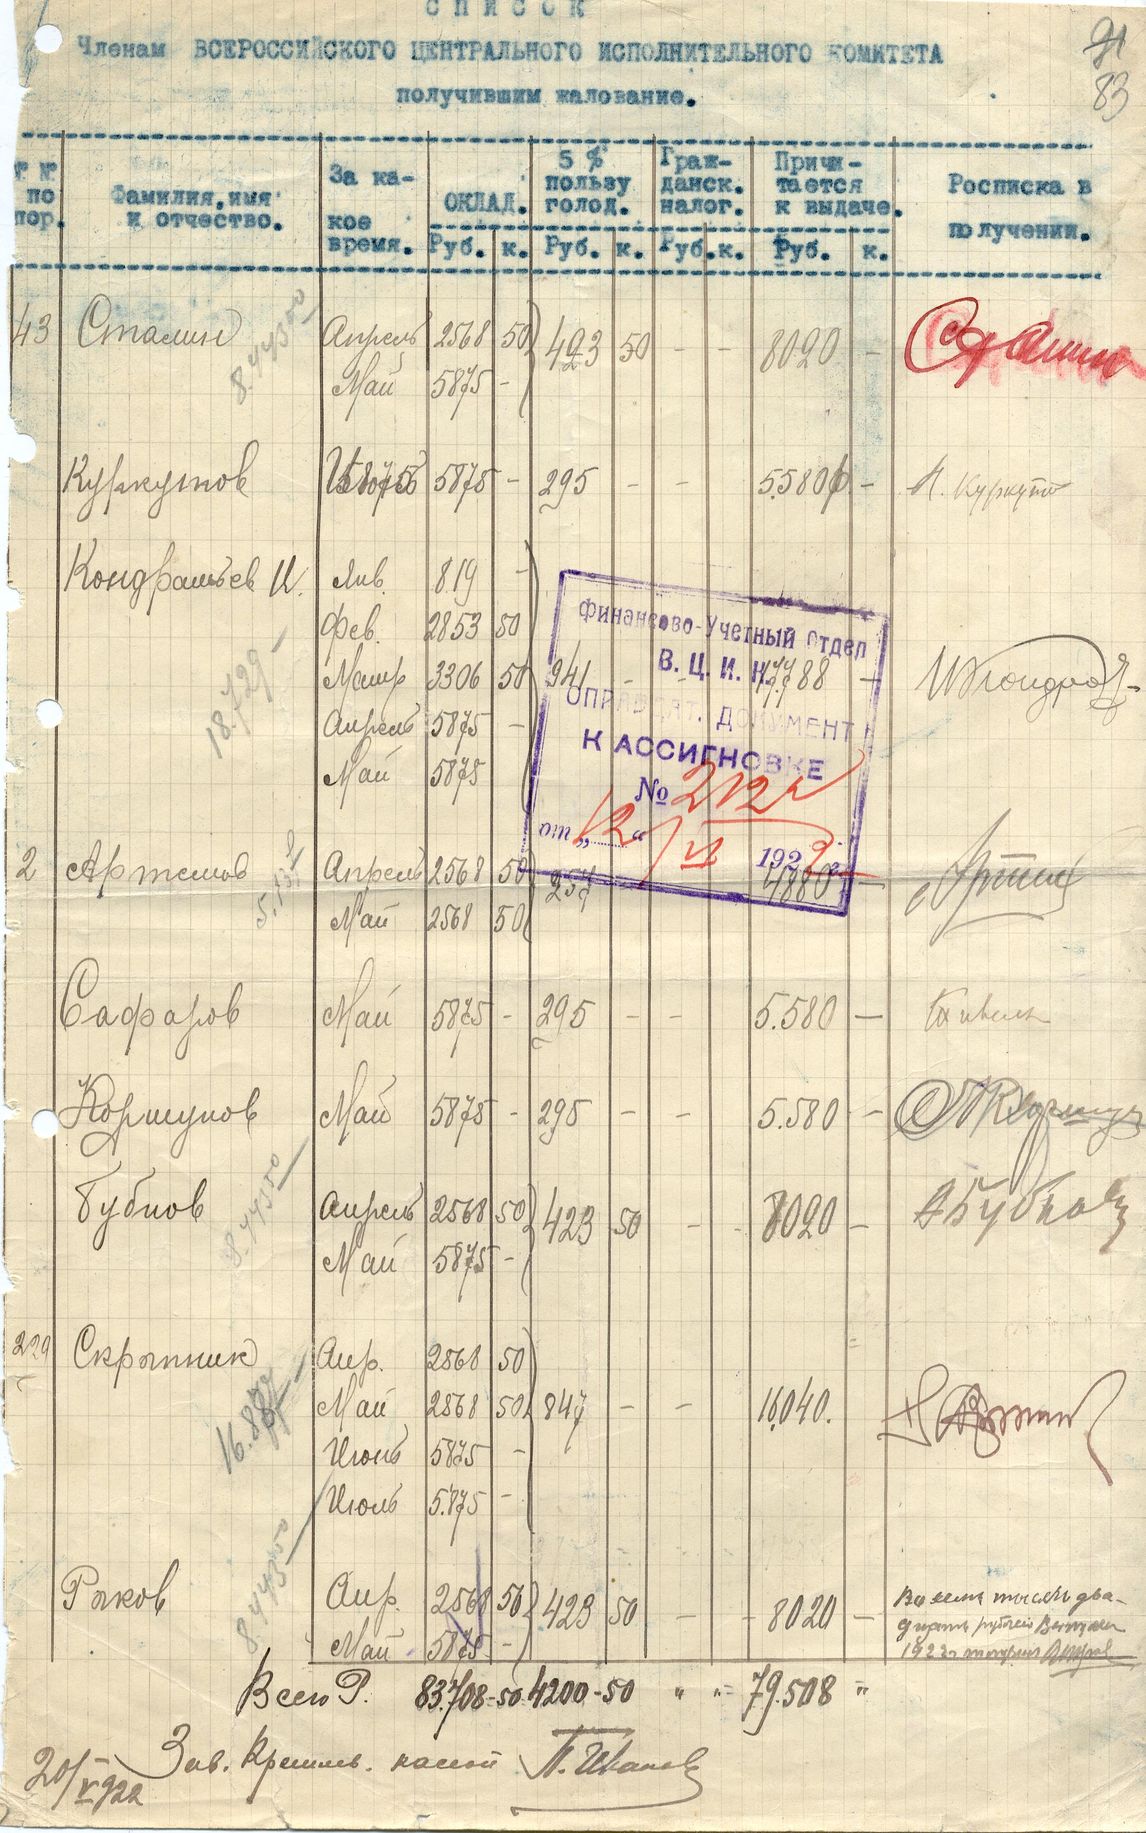 СПИСОК
Членам ВСЕРОССИЙСКОГО ЦЕНТРАЛЬНОГО ИСПОЛНИТЕЛЬНОГО КОМИТЕТА
получившим жалование.
91
83
№ № по пор.
Фамилия, имя и отчество.
За какое время.
ОКЛАД.
5 % пользу голод.
Граж-данск. налог.
Причи-тается к выдаче.
Росписка в получении.
Руб. к. Руб. к. Руб. к. Руб. к.
43 Сталин Апрель 2568 50 423 50 - - 8020 - Сталин
Май 5875 -
8.443 50
Куркутов 5875 - 295 - - 5.580 - Куркутов
Кондратьев И. Янв. 819 -
Фев. 2853 50
Март 3306 50 941 - 17.788 -
Апрель 5875 -
Май 5875
18.729 -
Финансово-Учетный Отдел
В. Ц. И. К.
ОПРАВДАТ. ДОКУМЕНТ
К АССИГНОВКЕ
№ 212
от „12“ VI 1922
2 Артемов Апрель 2568 50 257 - 4880 -
Май 2568 50
5.137
Сафаров Май 5875 - 295 - - 5.580 -
Коршунов Май 5875 - 295 - - 5.580 -
Бубнов Апрель 2568 50 423 50 - - 8020 - А Бубнов
Май 5875 -
8.443 50
229 Скрыпник Апр. 2568 50
Май 2568 50 847 - - 16.040.
Июнь 5875 -
Июль 5.875 -
16.887 -
Рыков Апр. 2568 50 423 50 - - 8020 - Восемь тысяч два-
Май 5875 - дцать рублей
8.443 50
Всего Р. 83.708-50 4200-50 " "= 79.508 "=
Зав. Кремлев. кассой П. Иванов
20/V 922